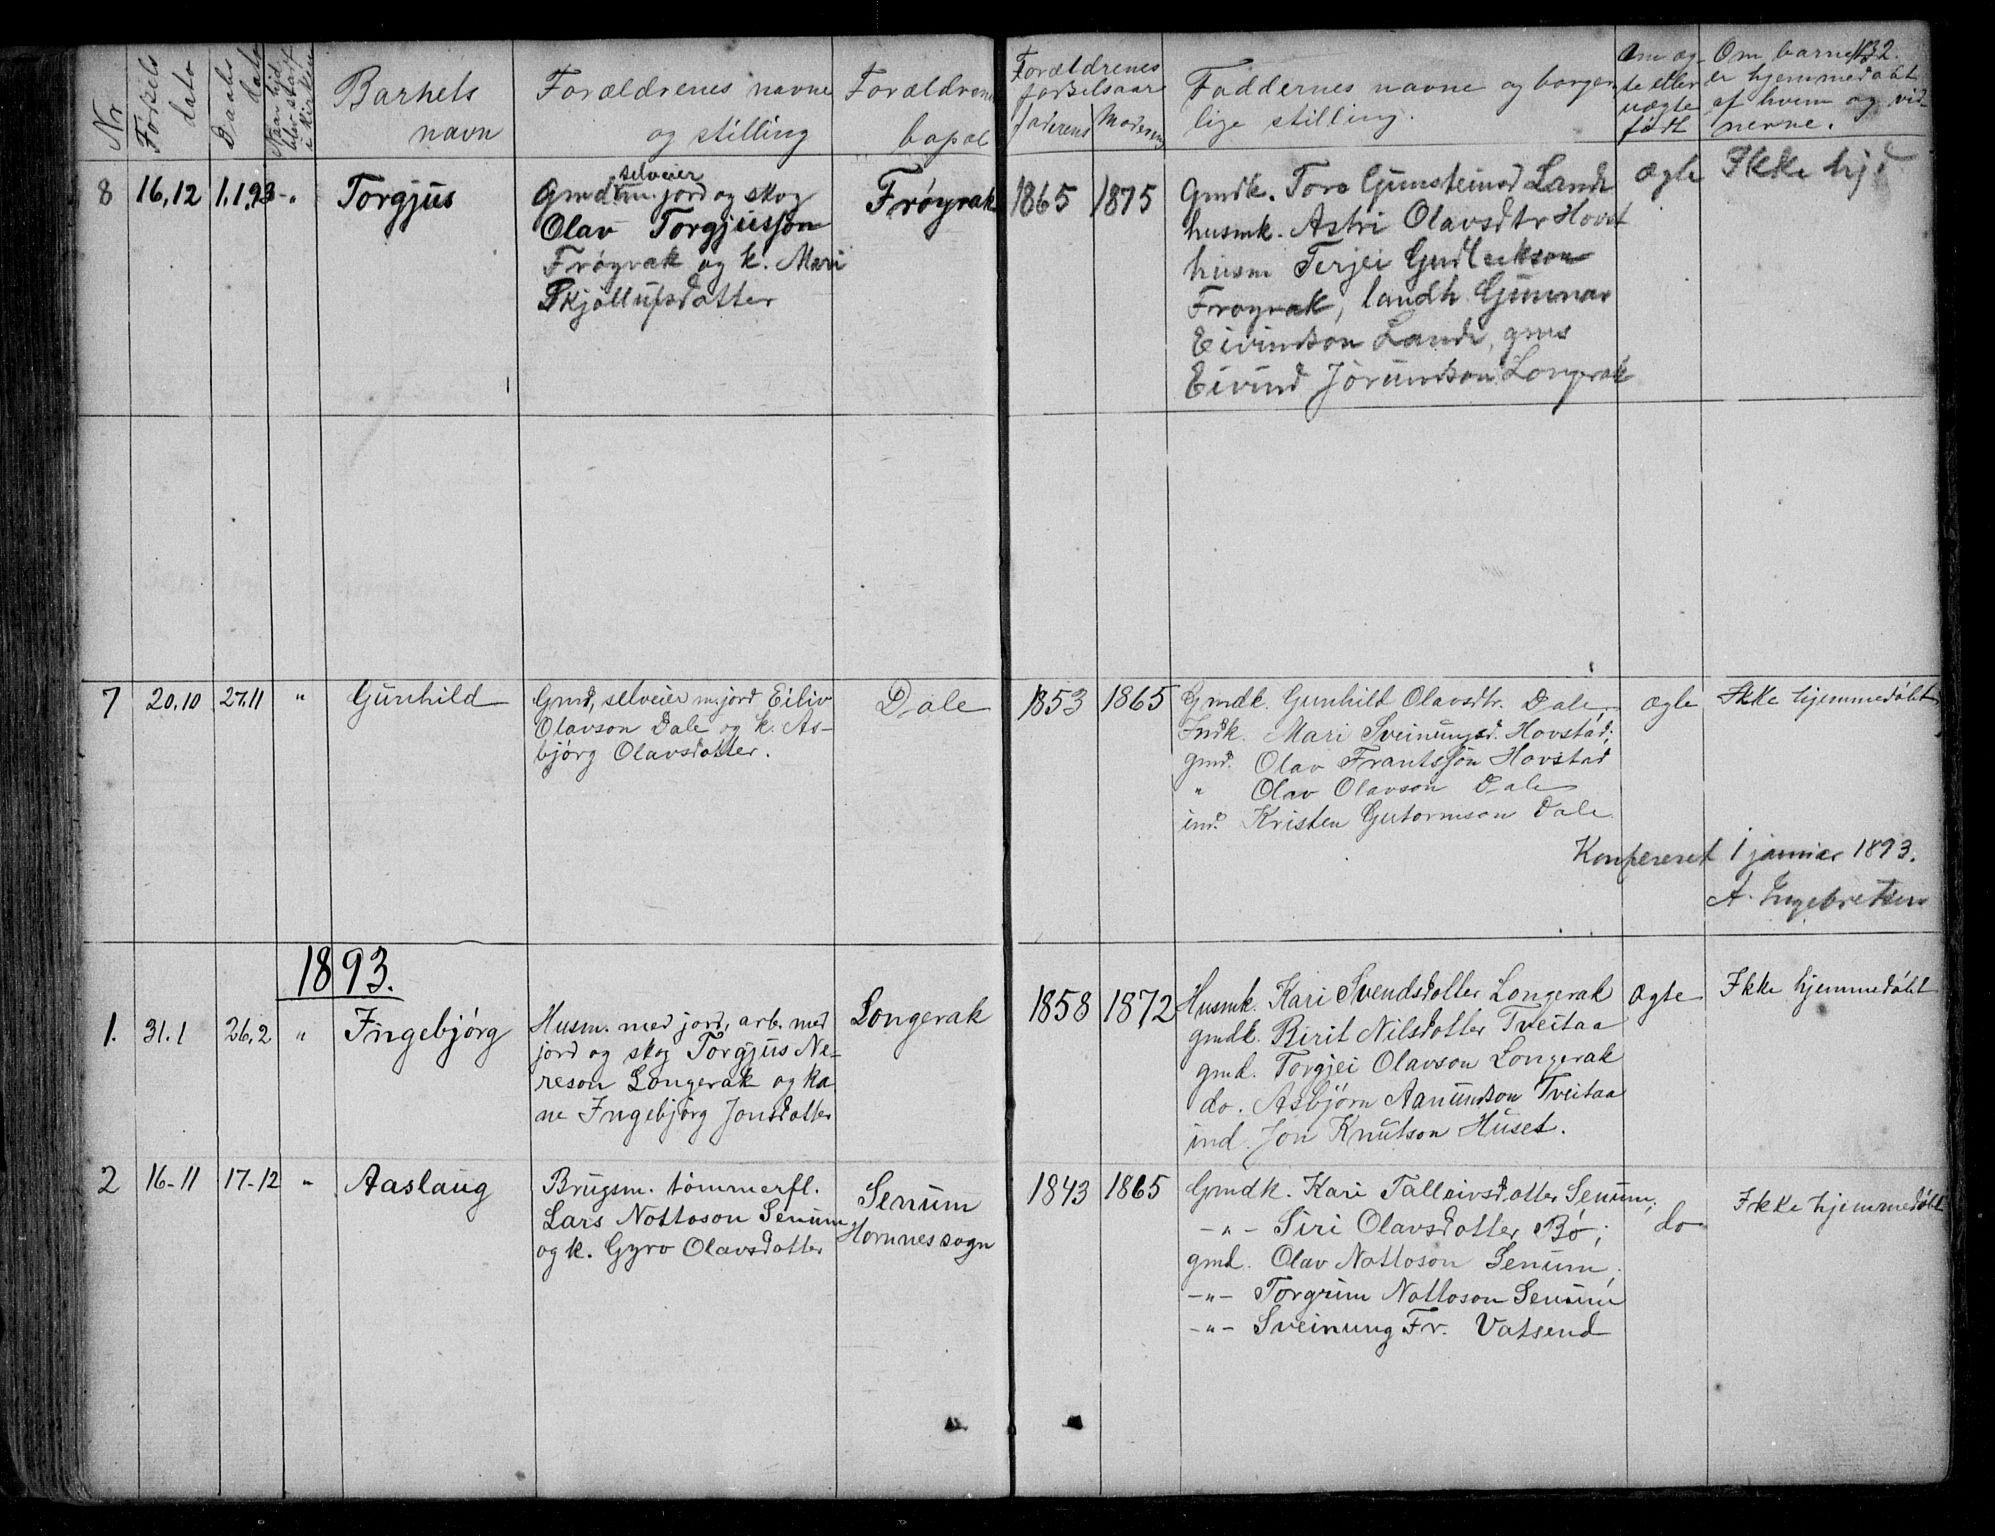 132.
Nr
Fødsels dato
Daabs dato
Barnets navn
Forældrenes navne og stilling
Forældrenes bopæl
Forældrenes fødselsaar
faderens
moderens
Faddernes navne og borgerlige stilling.
Om ægte eller uægte født
Om barnet er hjemmedøbt af hvem og vidnerne.
8 16,12 1.1.93 -"- Torgjus
selveier
Gmd m. jord og skog
Olav Torgjusson
Frøyrak og k. Mari
Skjøllufsdotter
Frøyrak
1865 1875
Gmdk. Toro Gunsteinsd Lande
husmk. Astri Olavsdtr Hovst
husm Terjei Gudleikson
Frøyrak, landh Gunnar
Eivindson Lande, gms
Eivind Jørundson Longerak
ægte Ikke hj.d
7 20.10 27.11 " Gunhild
Gmd, selveier m. jord Eiliv
Olavson Dale og k. As-
bjørg Olavsdotter.
Dale
1853 1865
Gmdk. Gunhild Olavsdtr. Dale,
Indk. Mari Sveinungsd. Hovstad;
gmd. Olav Frantsson Hovstad
" Olav Olavson Dale
ind. Kristen Gutormson Dale
ægte Ikke hjemmedøbt
Konfereret 1 januar 1893.
A. Ingebretsen
1893.
1. 31.1 26.2 " Ingebjørg
Husm. med jord, arb. med
jord og skog Torgjus Ne-
reson Longerak og ko-
ne Ingebjørg Jonsdotter
Longerak
1858 1872
Husmk. Kari Svendsdotter Longerak
gmdk. Birit Nilsdotter Tveitaa
gmd. Torgjei Olavson Longerak
do. Asbjørn Aanundson Tveitaa
ind. Jon Knutson Huset.
ægte Ikke hjemmedøbt
2 16-11 17-12 " Aaslaug
Brugsm. tømmerfl.
Lars Nottoson Senum
og k. Gyro Olavsdotter
Senum
Hornnes sogn
1843 1865
Gmdk. Kari Talleivsdotter Senum;
-"- Siri Olavsdotter Bø;
gmd. Olav Nottoson Senum,
-"- Torgrim Nottoson Senum
-"- Sveinung Fr. Vatsend
do Ikke hjemmedøbt